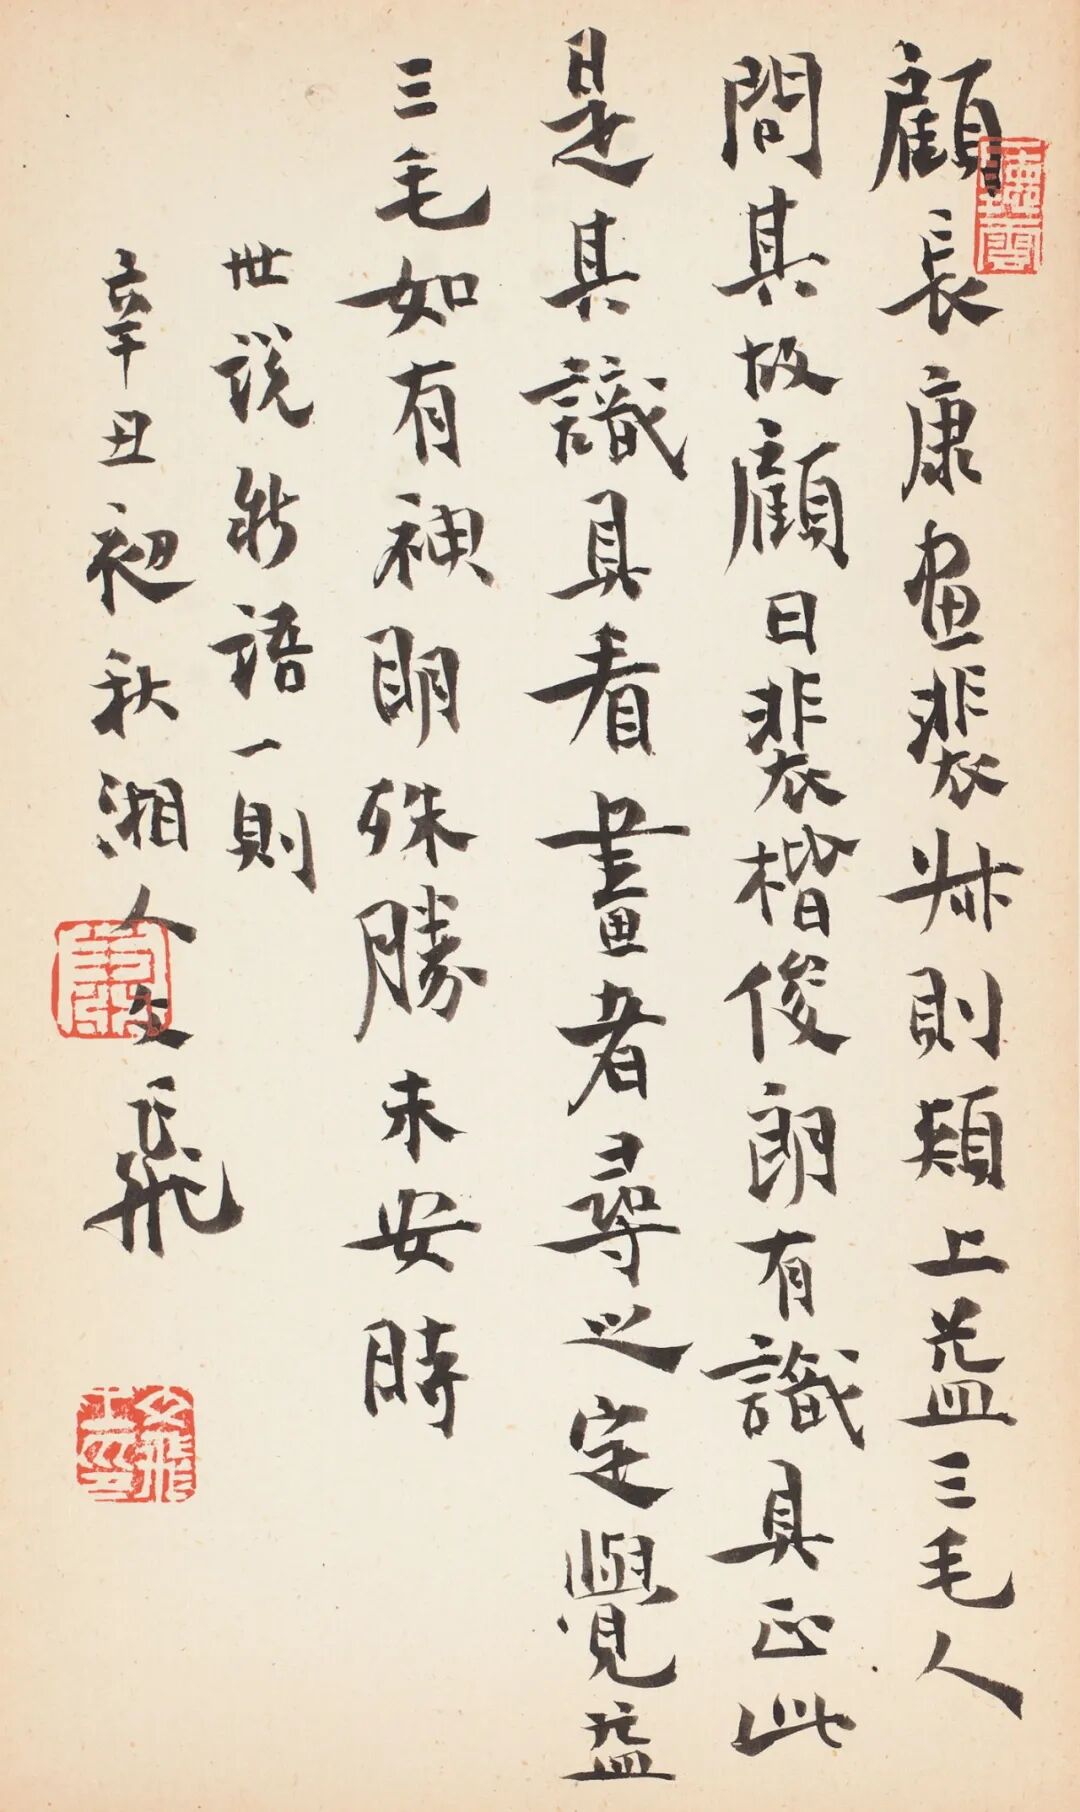 顧長康畫裴叔則頰上益三毛人
問其故顧曰裴楷俊朗有識具正此
是其識具看畫者尋之定覺益
三毛如有神明殊勝未安時
世說新語一則
辛丑初秋湘人文飛